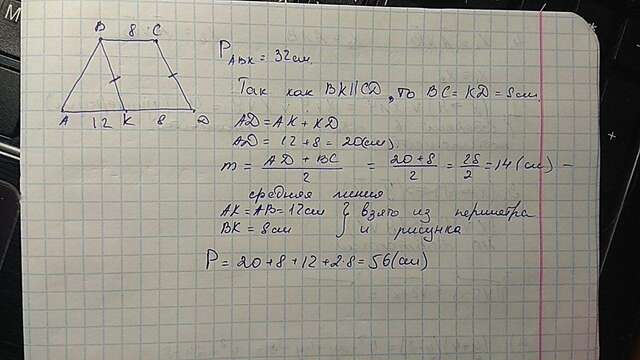 B 8 C
A 12 K 8 D
P ABK = 32см.
Так как BK||CD, то BC = KD = 8см.
AD = AK + KD
AD = 12 + 8 = 20(см)
m = AD + BC / 2 = 20 + 8 / 2 = 28 / 2 = 14 (см) –
средняя линия
AK = AB = 12см } взято из периметра
BK = 8см и рисунка
P = 20 + 8 + 12 + 2·8 = 56(см)